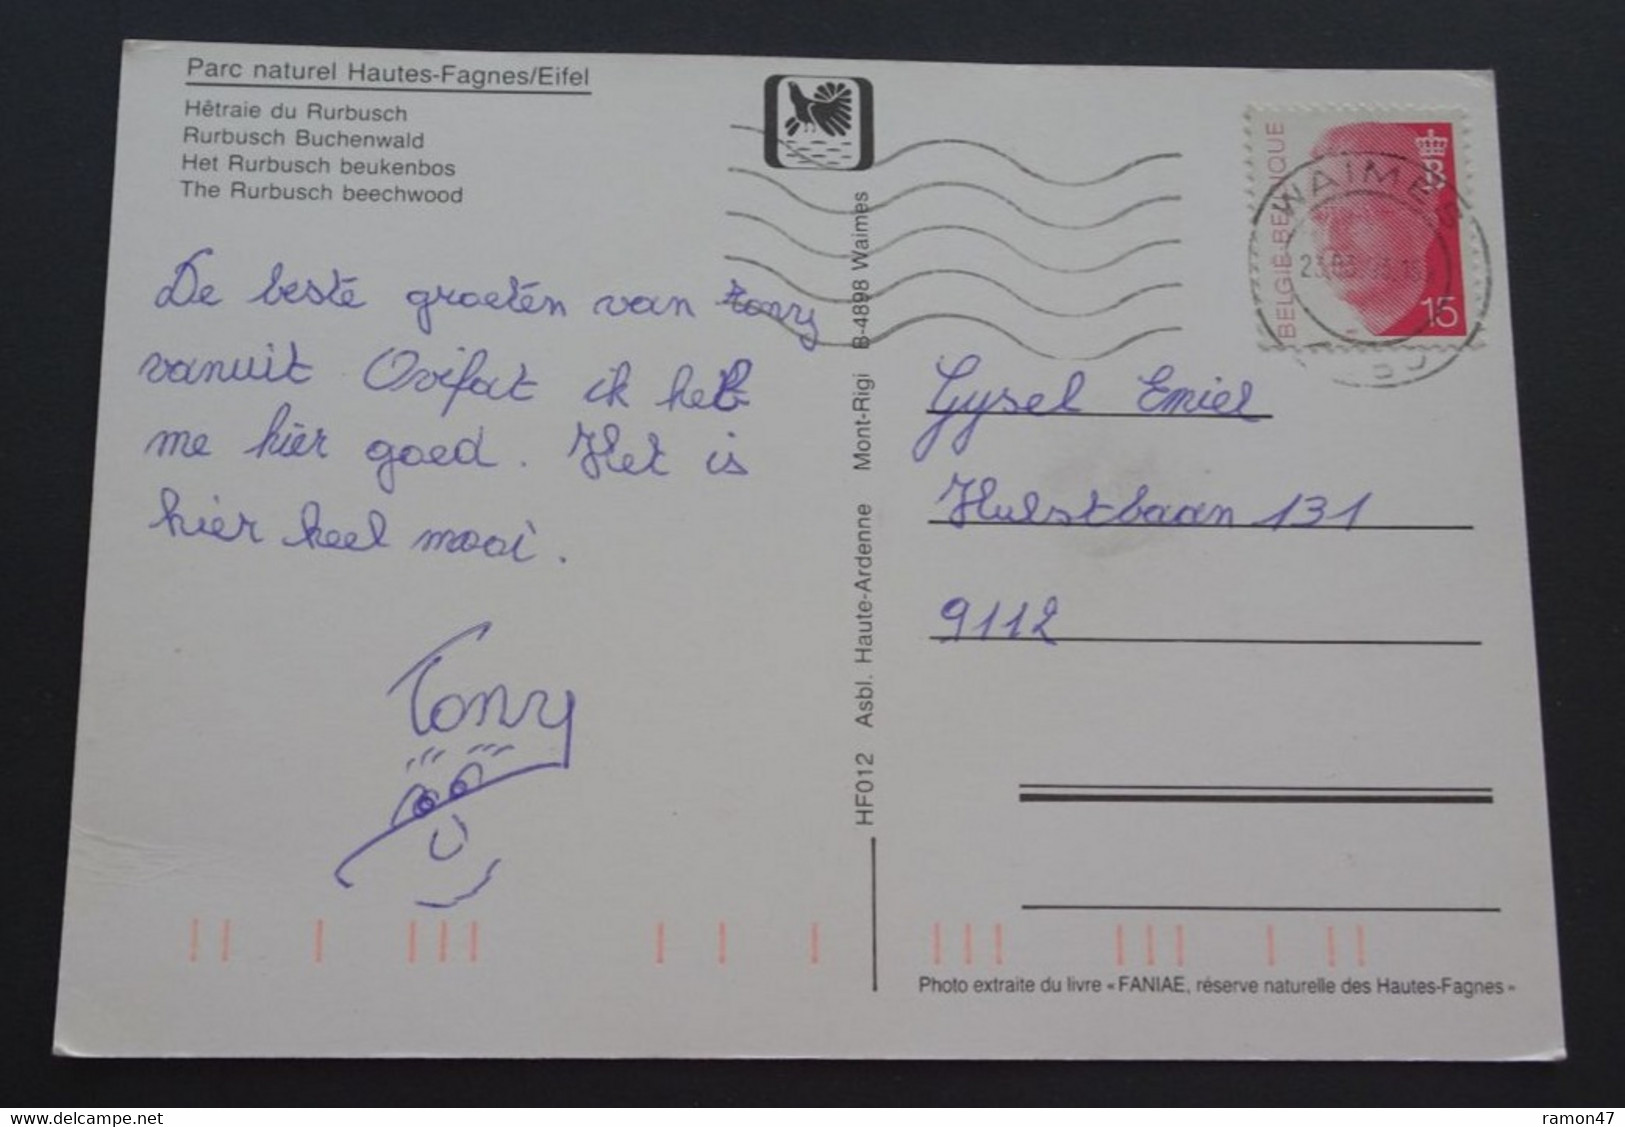 Parc naturel Hautes-Fagnes/Eifel
Hêtraie du Rurbusch
Rurbusch Buchenwald
Het Rurbusch beukenbos
The Rurbusch beechwood
De beste groeten van tony
vanuit Ovifat ik heb
me hier goed. Het is
hier heel mooi.
Tony
HF012 Asbl. Haute-Ardenne Mont-Rigi B-4898 Waimes
BELGIË-BELGIQUE
15
WAIMES
Gysel Emiel
Hulstbaan 131
9112
Photo extraite du livre «FANIAE, réserve naturelle des Hautes-Fagnes»
delcampe.net
ramon47